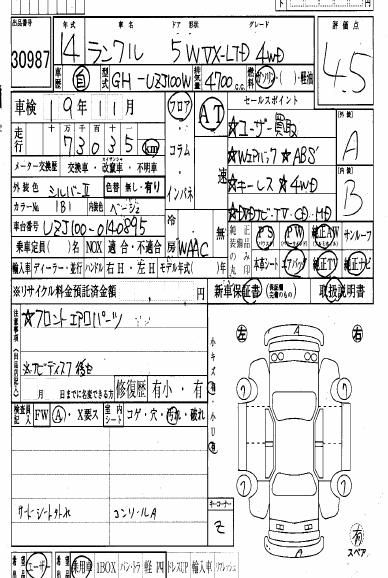 出品番号 年式 車名 ドア 形状 グレード 評価点
30987 14 ランクル 5W VX-LTD 4WD 4.5
車歴 自 型式 GH-UZJ100W 排気量 4700cc 燃料 ガソリン・( )・軽油
車検 19年11月 フロア AT セールスポイント
走行 十万 万 千 百 十 km
73035
コラム ☆ユーザー買取 外装 A
メーター交換車 交換車・改竄車・不明車 ☆Wエアバック ☆ABS
外装色 シルバーII 色替 無し・有り インパネ 速 ☆キーレス ☆4WD 内装 B
カラーNo 1B1 内装色 ベージュ ☆DVDナビ・TV・CD・MD
車台番号 UZJ100-0140895 冷房 WAAC 無 純正装備品のみ○印 PS PW 純正AW サンルーフ
乗車定員( )名 NOX 適合・不適合 本革シート エアバッグ 純正TV 純正ナビ
輸入車 ディーラー・並行 ハンドル 右H・左H モデル年式( )年
※リサイクル料金預託済金額 円 新車保証書 取扱説明書
注意事項(出品店記入)
☆フロントエアロパーツ
※ナビディスク欠品
月 日までに名変できる方 修復歴 有小・有
検査員記入 FW A・X要ス 室内シート コゲ・穴・汚れ・破れ
サードシート外れ コンソールA
小キズ有 小凹有
キーコーナー
2
左 右
A
C
有
スペア
希望 ユーザー 希望 乗用車 1BOX バン・トラ 軽 四 ドレスUP 輸入車 リフレッシュ